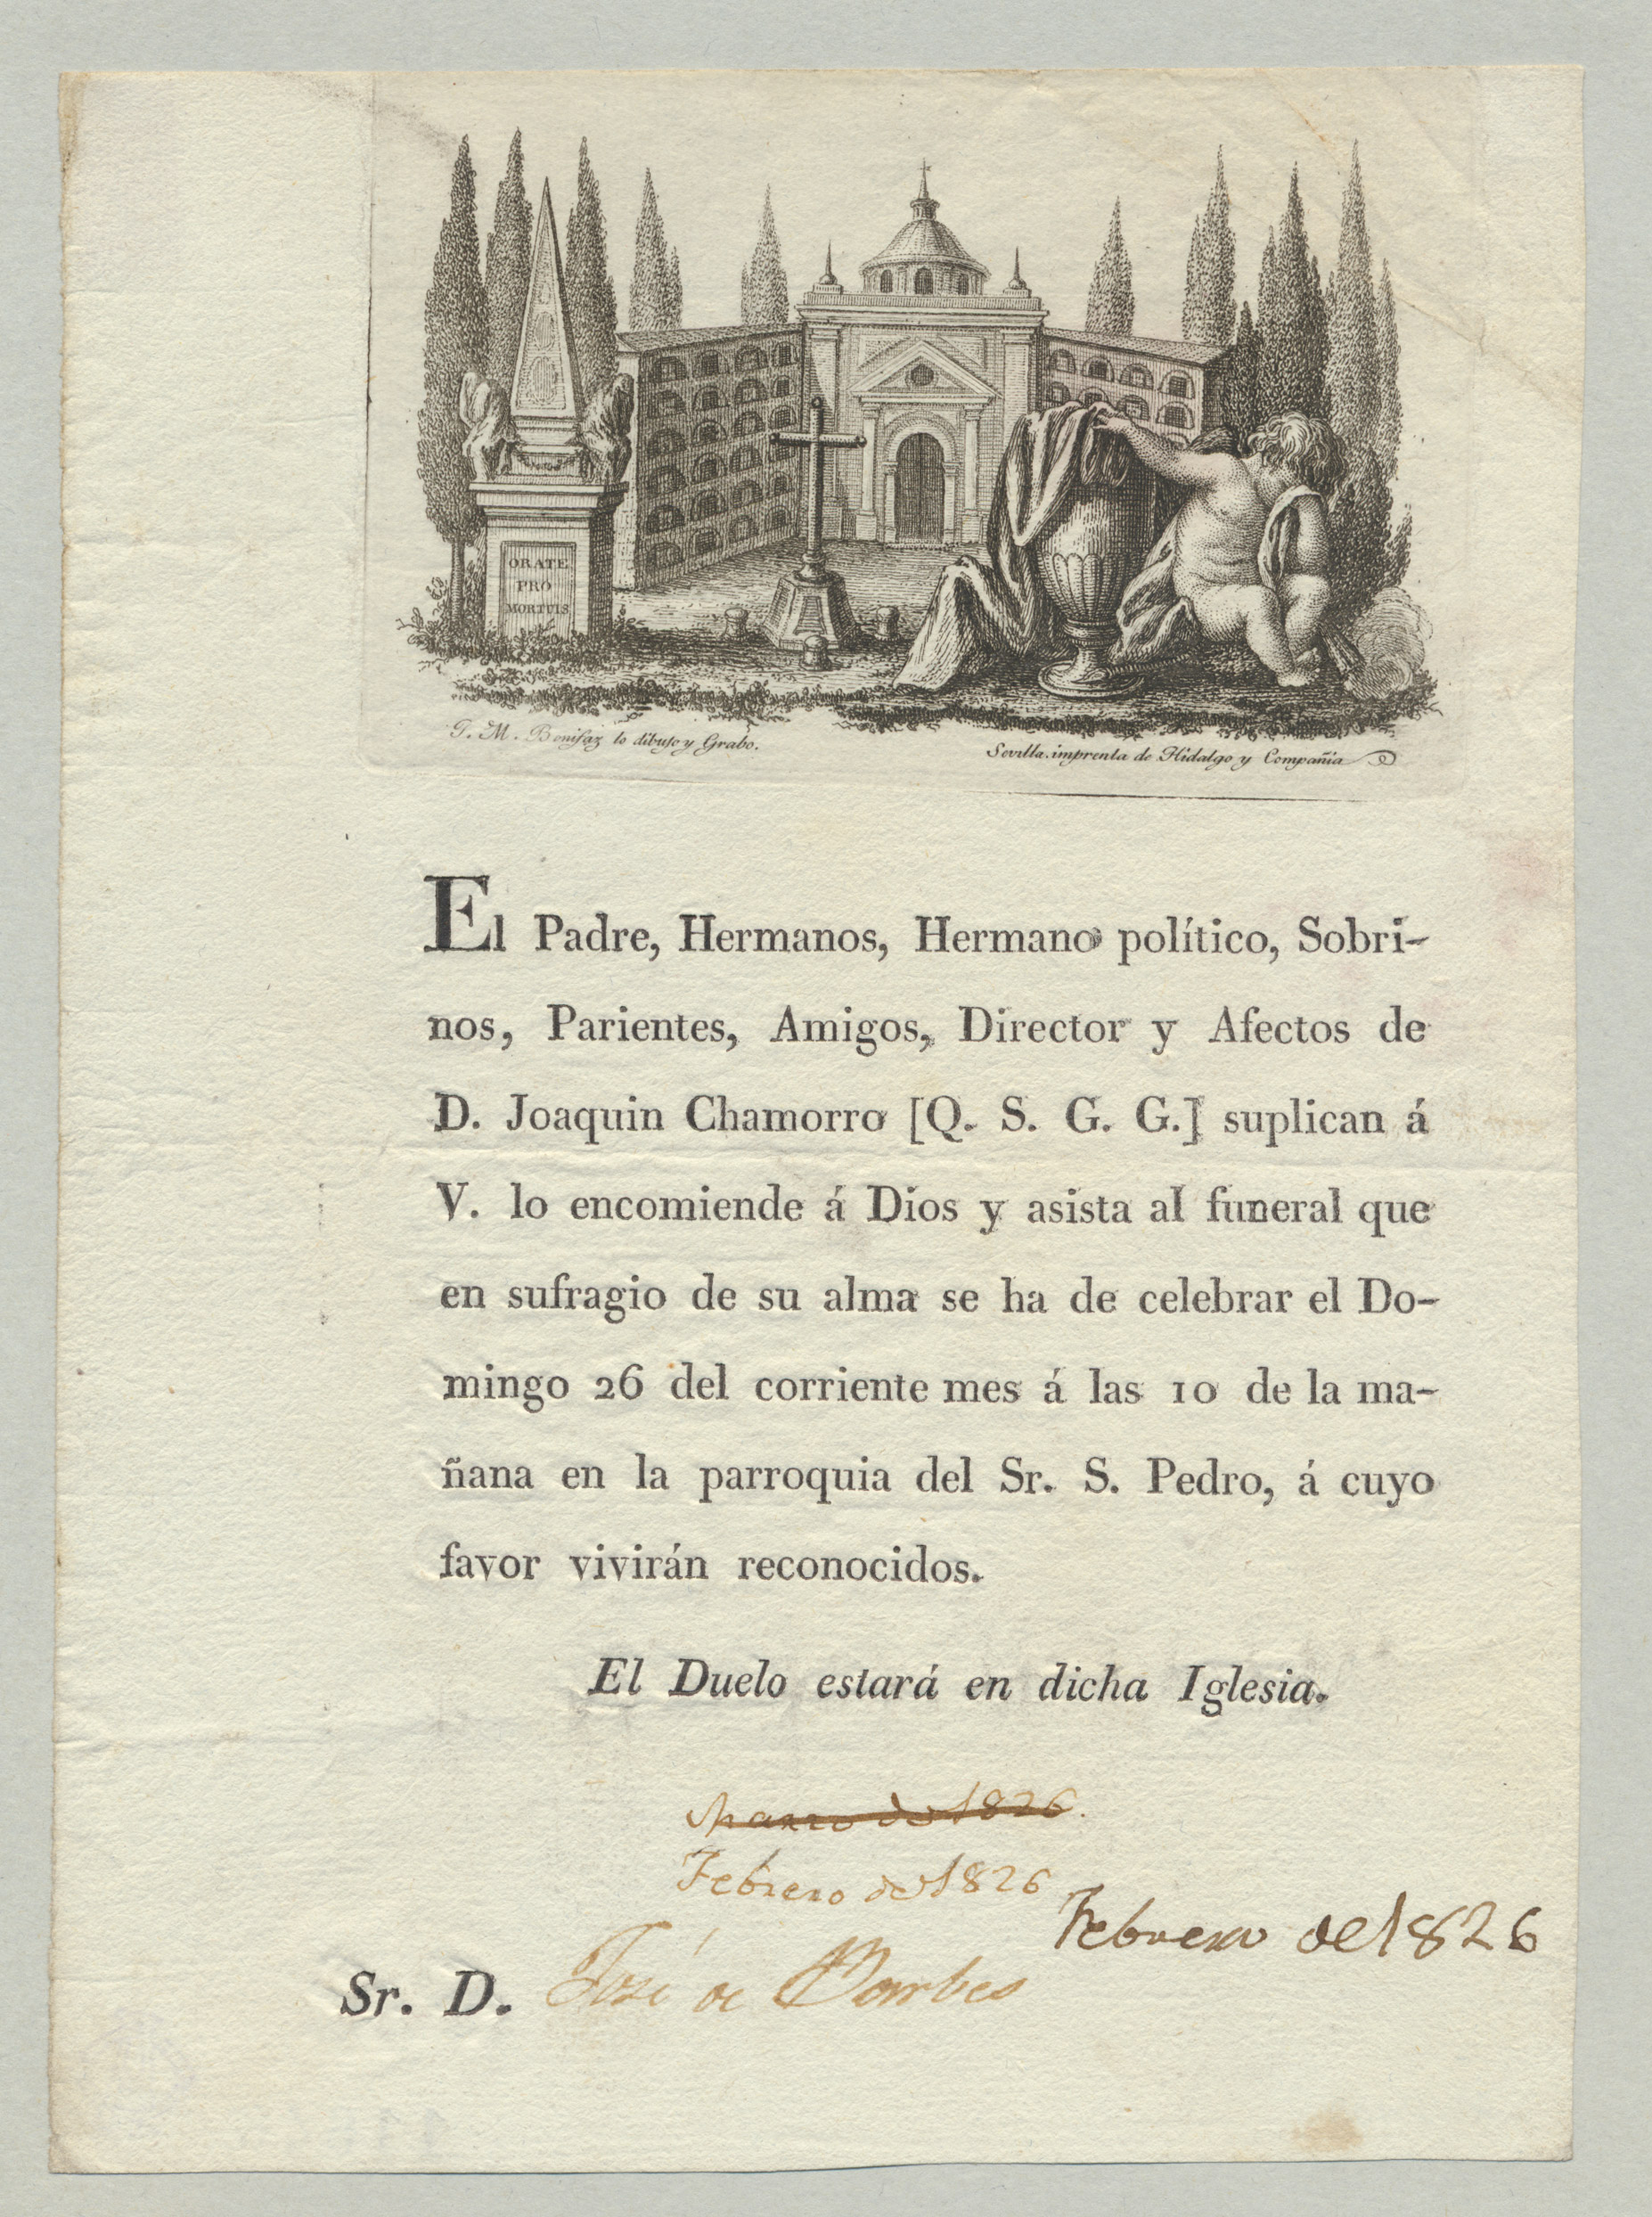 ORATE
PRO
MORTVIS
J. M. Bonifaz lo dibujo y Grabo.
Sevilla. imprenta de Hidalgo y Compañia
El Padre, Hermanos, Hermano político, Sobri-
nos, Parientes, Amigos, Director y Afectos de
D. Joaquin Chamorro [Q. S. G. G.] suplican á
V. lo encomiende á Dios y asista al funeral que
en sufragio de su alma se ha de celebrar el Do-
mingo 26 del corriente mes á las 10 de la ma-
ñana en la parroquia del Sr. S. Pedro, á cuyo
favor vivirán reconocidos.
El Duelo estará en dicha Iglesia.
Marzo de 1826.
Febrero de 1826
Febrero de 1826
Sr. D. José de